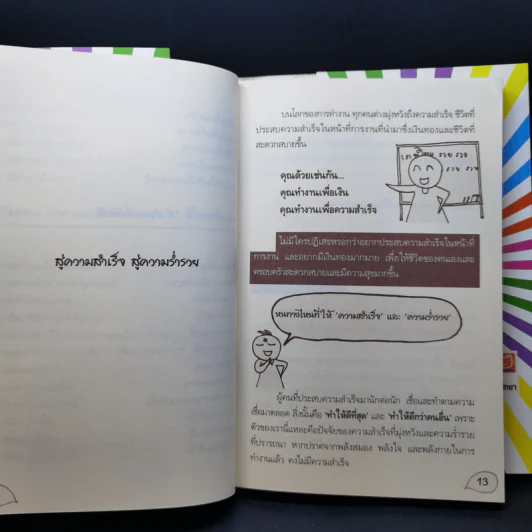 สู่ความสำเร็จ สู่ความร่ำรวย
บนโลกของการทำงาน ทุกคนต่างมุ่งหวังถึงความสำเร็จ ชีวิตที่
ประสบความสำเร็จในหน้าที่การงานที่นำมาซึ่งเงินทองและชีวิตที่
สะดวกสบายขึ้น
รวย รวย
รวย
คุณด้วยเช่นกัน...
คุณทำงานเพื่อเงิน
คุณทำงานเพื่อความสำเร็จ
ไม่มีใครปฏิเสธหรอกว่าอยากประสบความสำเร็จในหน้าที่
การงาน และอยากมีเงินทองมากมาย เพื่อให้ชีวิตของตนเองและ
ครอบครัวสะดวกสบายและมีความสุขมากขึ้น
หนทางไหนที่ให้ 'ความสำเร็จ' และ 'ความร่ำรวย'
ผู้คนที่ประสบความสำเร็จมานักต่อนัก เชื่อและทำตามความ
เชื่อมาตลอด สิ่งนั้นคือ 'ทำให้ดีที่สุด' และ 'ทำให้ดีกว่าคนอื่น' เพราะ
ตัวของเรานี่แหละคือปัจจัยของความสำเร็จที่มุ่งหวังและความร่ำรวย
ที่ปรารถนา หากปราศจากพลังสมอง พลังใจ และพลังกายในการ
ทำงานแล้ว คงไม่มีความสำเร็จ
13